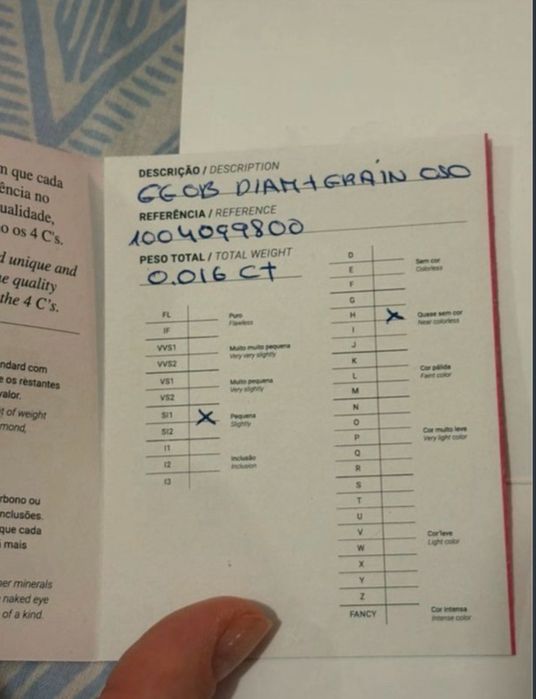 n que cada
ência no
ualidade,
o os 4 C's.
d unique and
e quality
the 4 C's.
ndard com
e os restantes
valor.
t of weight
mond,
rbono ou
nclusões.
que cada
mais
er minerals
naked eye
of a kind.
DESCRIÇÃO / DESCRIPTION
GGOB DIAM+GRAIN OSO
REFERÊNCIA / REFERENCE
1004099800
PESO TOTAL / TOTAL WEIGHT
0.016 CT
FL
Puro
Flawless
IF
VVS1
Muito muito pequena
Very very slightly
VVS2
VS1
Muito pequena
Very slightly
VS2
SI1 X
Pequena
Slightly
SI2
I1
I2
Inclusão
Inclusion
I3
D
Sem cor
Colorless
E
F
G
H X
Quase sem cor
Near colorless
I
J
K
Cor pálida
Faint color
L
M
N
O
Cor muito leve
Very light color
P
Q
R
S
T
U
V
Cor leve
Light color
W
X
Y
Z
FANCY
Cor intensa
Intense color